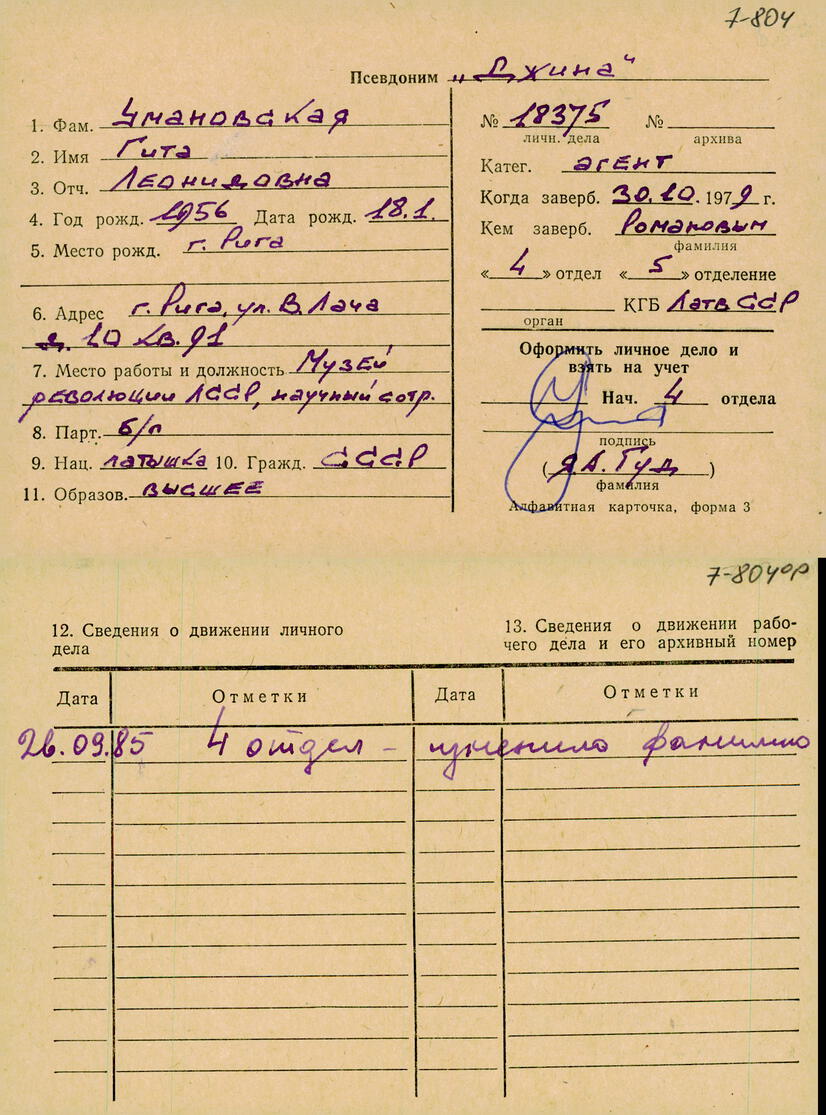 7-804
Псевдоним „Джина“
1. Фам. Умановская
2. Имя Гита
3. Отч. Леонидовна
4. Год рожд. 1956 Дата рожд. 18.1.
5. Место рожд. г. Рига
6. Адрес г. Рига, ул. В. Лача
д. 10 кв. 91
7. Место работы и должность Музей
революции ЛССР, научный сотр.
8. Парт. б/п
9. Нац. латышка 10. Гражд. СССР
11. Образов. высшее
№ 18375 №
личн. дела архива
Катег. агент
Когда заверб. 30.10.1979 г.
Кем заверб. Романовым
фамилия
«4» отдел «5» отделение
КГБ Латв ССР
орган
Оформить личное дело и
взять на учет
Нач. 4 отдела
подпись
(Я.А. Гуд)
фамилия
Алфавитная карточка, форма 3
7-804 ор
12. Сведения о движении личного
дела
13. Сведения о движении рабо-
чего дела и его архивный номер
Дата Отметки Дата Отметки
26.09.85 4 отдел - изменила фамилию